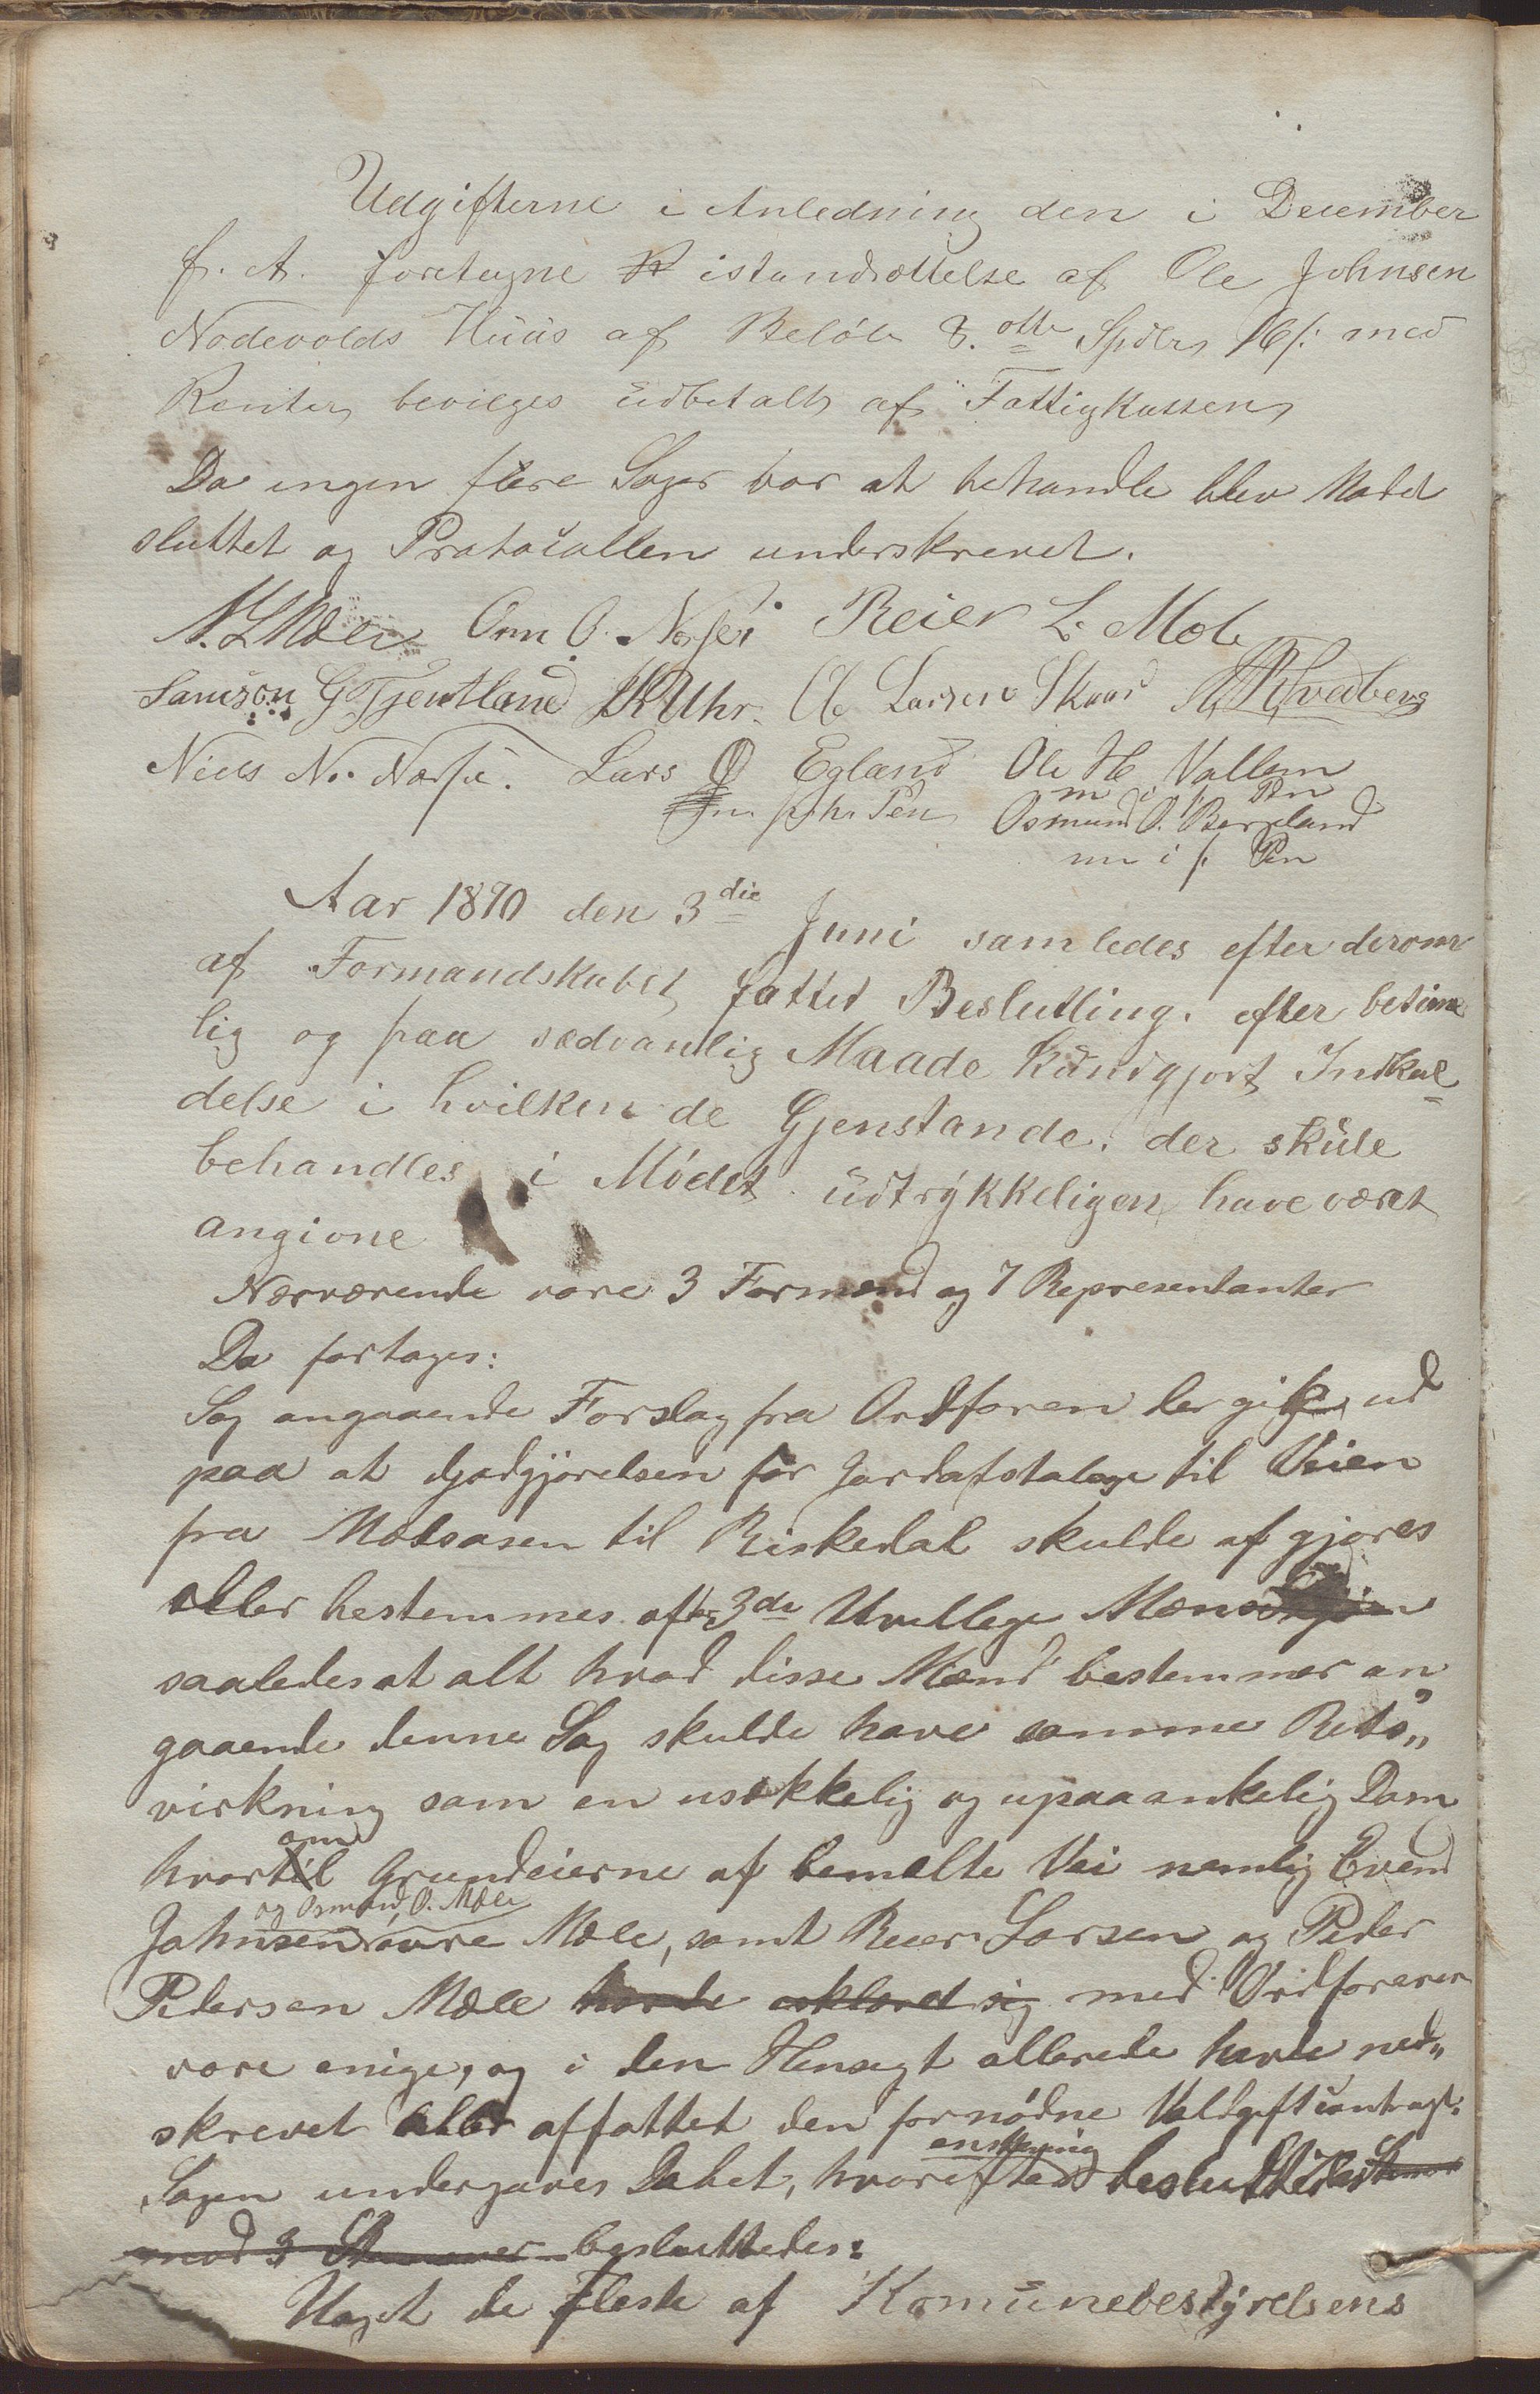 Udgifterne i Anledning den i December
f. A. foretagne istandsættelse af Ole Johnsen
Nodevolds Huus af Beløb 8. otte Spdlr, 16 s: med
Renter, bevilges udbetalt af Fattigkassen,
Da ingen flere Sager var at behandle blev Mødet
sluttet og Protocollen underskrevet.
Onn O. Nessei Reier L. Mæle
Samson G Tjentland Ole Larsen Skaar
Niels N. Nessei. Lars O Egland Ole H Vallem
m i f. Pen
Osmund O. Bergeland
m i f. Pen
Aar 1870 den 3die Juni samledes efter derom
af Formandskabet fattet Beslutling, efter betime
lig og paa sædvanlig Maade kundgjort Indkal-
delse i hvilken de Gjenstande, der skule
behandles i Mødet udtrykkeligen have været
angivne
Nærværende vare 3 Formænd og 7 Representanter
Da fortages:
Sag angaaende Forslag fra Ordføren der gik ud
paa at Godgjørelsen for Jordafstalese til Veien
fra Mælsosen til Riskedal skulde af gjøres
eller bestemmes af 3de Uvillige Mænd
saaledes at alt hvad disse Mænd bestemmer an
gaaende denne Sag skulde have samme Rets„
virkning som en usvækkelig og upaaankelig Dom
om
hvortil Grundeierne af bemelte Vei nemlig Evend
og Osmund O. Mæle
Johnsen øvre Mæle, samt Reier Larsen og Peder
Pedersen Mæle havde erklæret sig med Ordføreren
vare enige, og i den Hensigt allerede havde ned„
skrevet eller affattet den fornødne Voldgiftcontract.
enstemmig
Sagen undergaves Debat, hvorefter besluttedes
mod 3 Stemmer besluttedes:
Uagt de fleste af Komunebestyrelsens